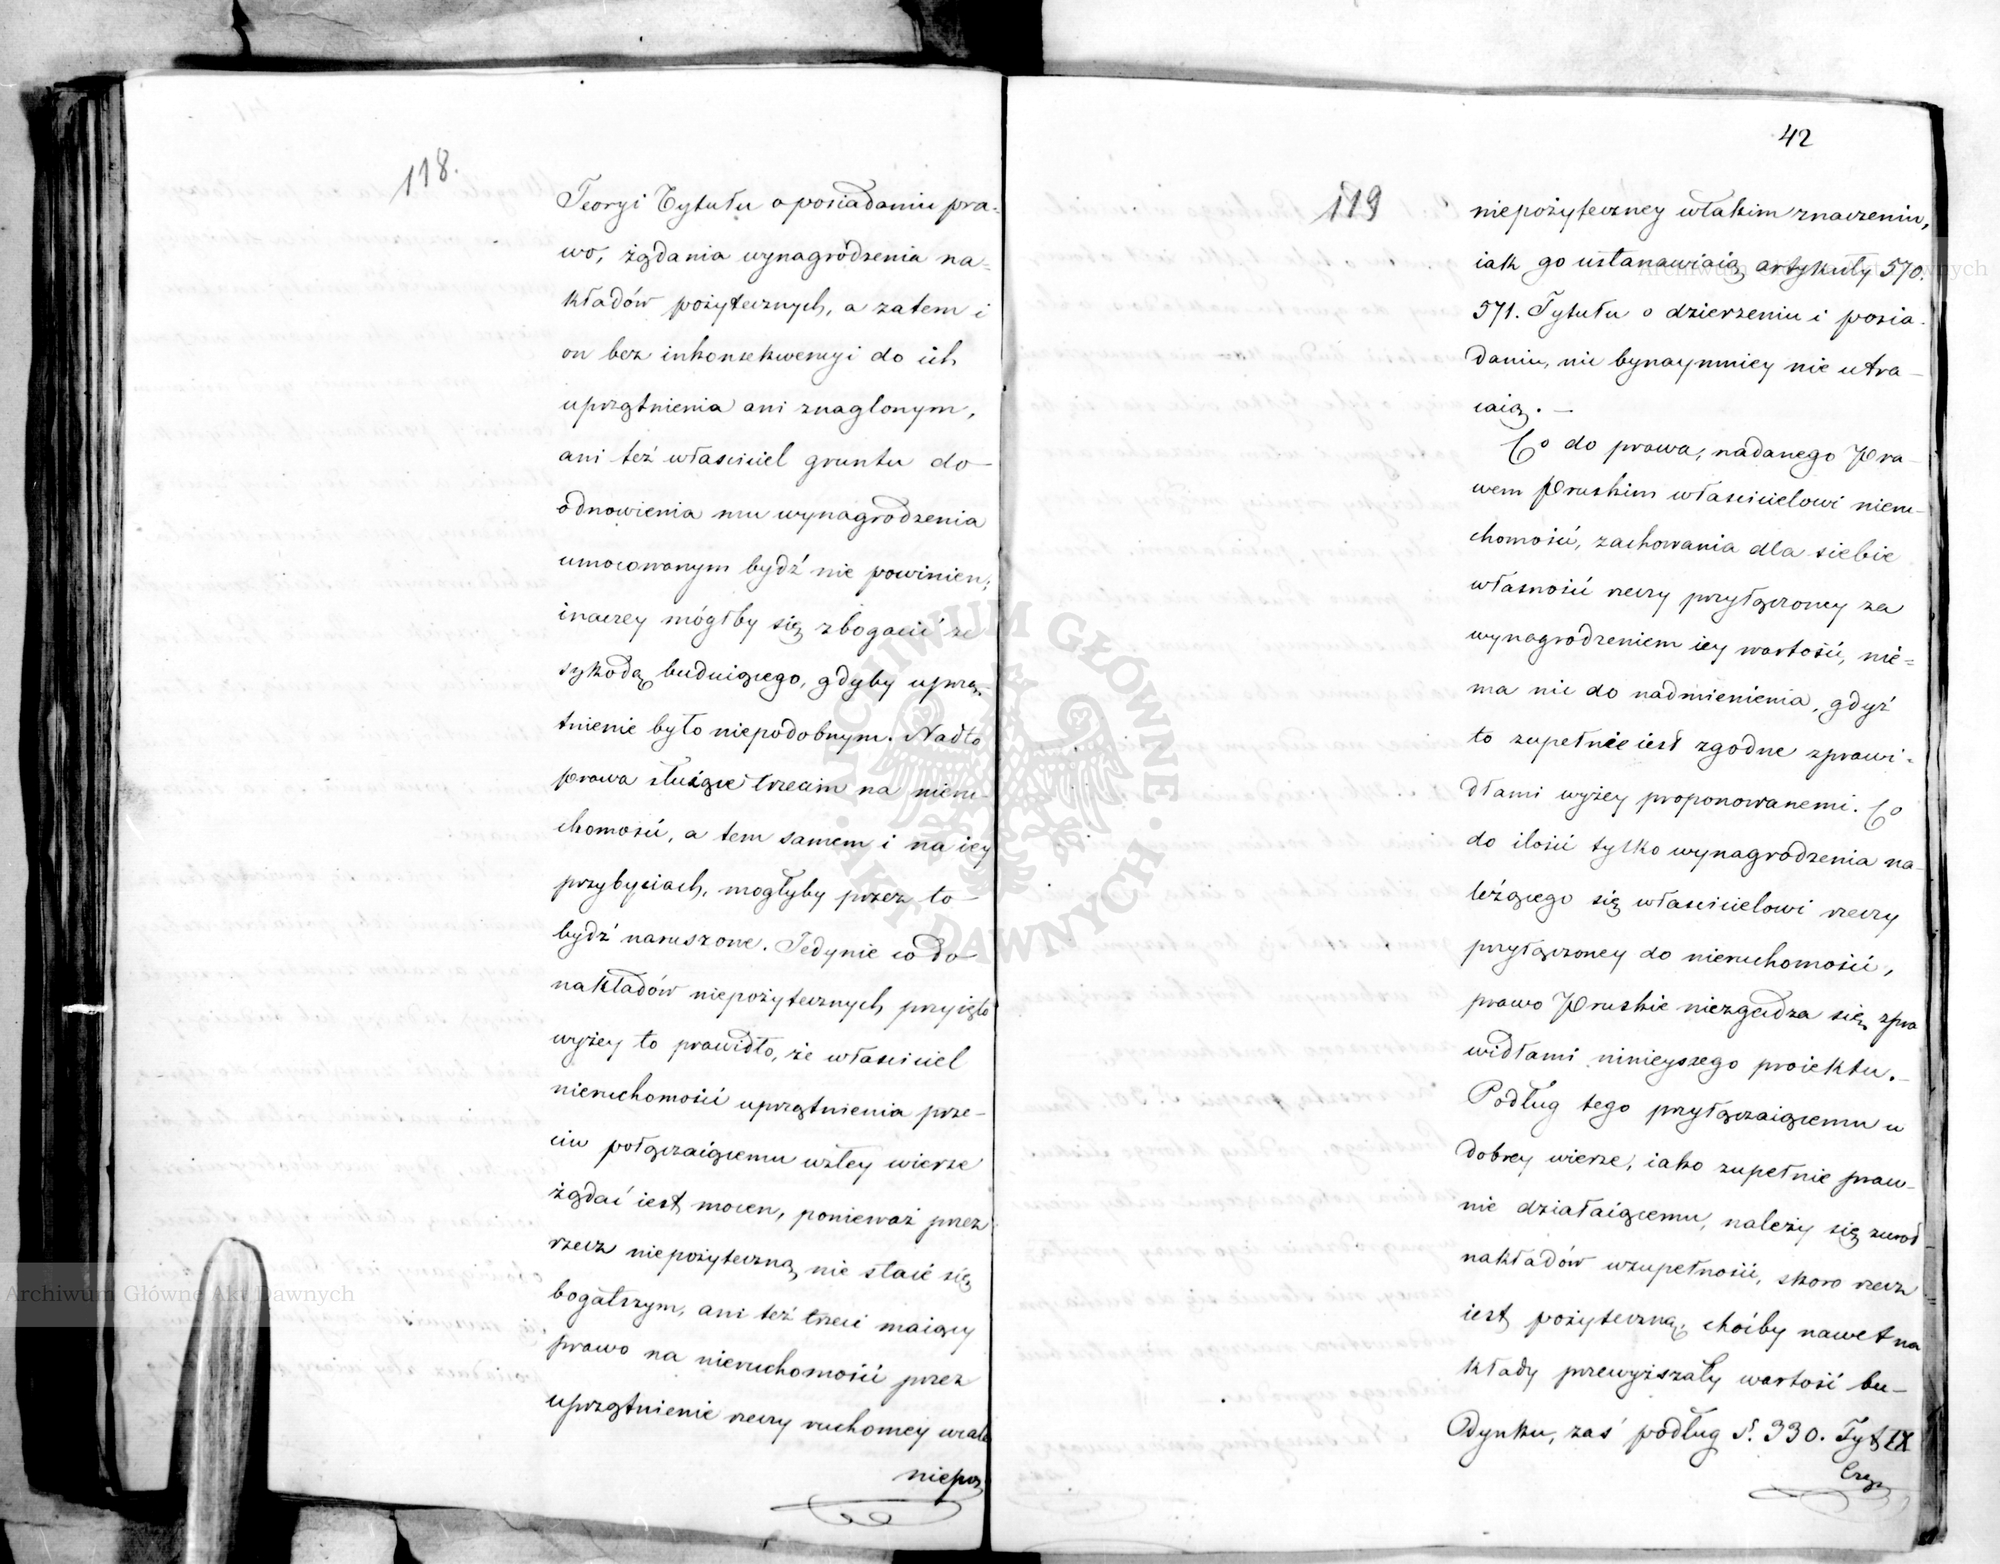 118.
Teoryi Tytułu o posiadaniu pra-
wo, żądania wynagrodzenia na-
kładów pożytecznych, a zatem i
on bez inkonsekwencyi do ich
uprzątnienia ani znaglonym,
ani też właściciel gruntu do
odnowienia mu wynagrodzenia
umocowanym bydź nie powinien;
inaczey mógłby się zbogacić ze
szkodą buduiącego, gdyby uprzą-
tnienie było niepodobnym. Nadto
prawa służące trzecim na nieru-
chomość, a tem samem i na iey
przybyciach, mogłyby przez to
bydź naruszone. Jedynie co do
nakładów niepożytecznych przyięto
wyżey to prawidło, że właściciel
nieruchomości uprzątnienia prze-
ciw połączaiącemu w złey wierze
żądać iest mocen, ponieważ przez
rzecz niepożyteczną nie staie się
bogatszym, ani też trzeci maiący
prawo na nieruchomości przez
uprzątnienie rzeczy ruchomey wcale
niepoż
42
119
niepożyteczney w takim znaczeniu,
iak go ustanawiaią artykuły 570.
571. Tytułu o dzierzeniu i posia-
daniu, nic bynaymniey nie utra-
caią. —
Co do prawa, nadanego Pra-
wem Pruskim właścicielowi nieru-
chomości, zachowania dla siebie
własności rzeczy przyłączoney za
wynagrodzeniem iey wartości, nie-
ma nic do nadmienienia, gdyż
to zupełnie iest zgodne z prawi-
dłami wyżey proponowanemi. Co
do ilości tylko wynagrodzenia na-
leżącego się właścicielowi rzeczy
przyłączoney do nieruchomości,
prawo Pruskie niezgadza się z pra
widłami ninieyszego proiektu. —
Podług tego przyłączaiącemu w
dobrey wierze, iako zupełnie praw-
nie działaiącemu, należy się zwrot
nakładów w zupełności, skoro rzecz
iest pożyteczną, choćby nawet na
kłady przewyższały wartość bu-
dynku, zaś podług §. 330. Tyt IX
Częś
ARCHIWUM GŁÓWNE · AKT DAWNYCH ·
Archiwum Główne Akt Dawnych
Archiwum Główne Akt Dawnych